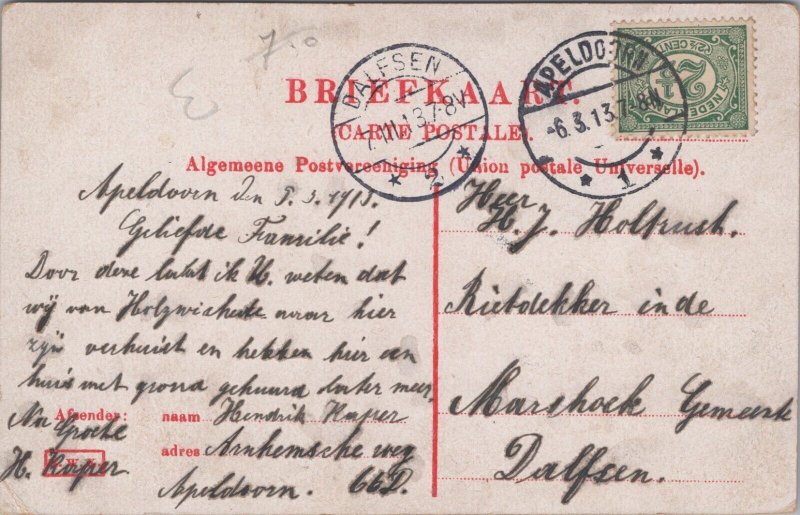 7.50
BRIEFKAART.
(CARTE POSTALE).
Algemeene Postvereeniging (Union postale Universelle).
DALFSEN
7.III.13.7-8V
APELDOORN
-6.3.13.7-8N
1
NEDERLAND
2½
(2½ CENT)
Apeldoorn den 5.3.1913.
Geliefde Familie!
Door deze laat ik U. weten dat
wij van Holzwickede naar hier
zijn verhuist en hebben hier een
huis met grond gehuurd later meer,
Na Groete
H. Kasper
Afzender: naam Hendrik Kasper
adres Arnhemsche weg
Apeldoorn. 66D.
Heer
H. J. Holtrust.
Rietdekker in de
Marshoek Gemeente
Dalfsen.